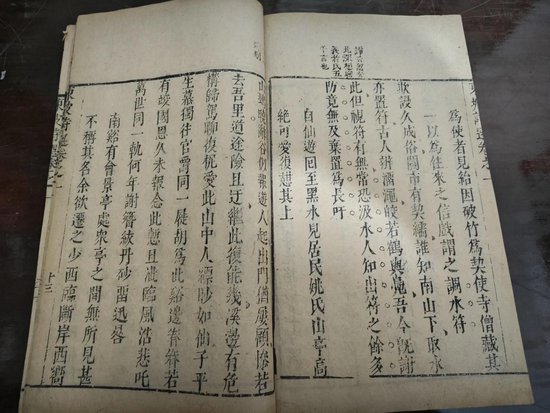 千言也
為使者見紿因破竹為契使寺僧藏其
一以為往來之信戲謂之調水符
欺謾久成俗關市有契繻誰知南山下取水
亦置符古人辨淄澠皎若鶴與鳧吾今既謝
此但視符有無常恐汲水人智出符之餘多
防竟無及棄置為長吁
自仙遊回至黑水見居民姚氏山亭高
絕可愛復憩其上
山鴉曉辭谷似報遊人起出門猶屢顧慘若
去吾里道途險且迂繼此復能幾溪邊有危
構歸駕聊復柅愛此山中人縹緲如仙子平
生慕獨往官爵同一屣胡為此谿邊眷眷若
有竢國恩久未報念此慙且泚臨風浩悲吒
萬世同一軌何年謝簪紱丹砂留迅晷
南谿有會景亭處眾亭之間無所見甚
不稱其名余欲遷之少西臨斷岸西嚮
十三